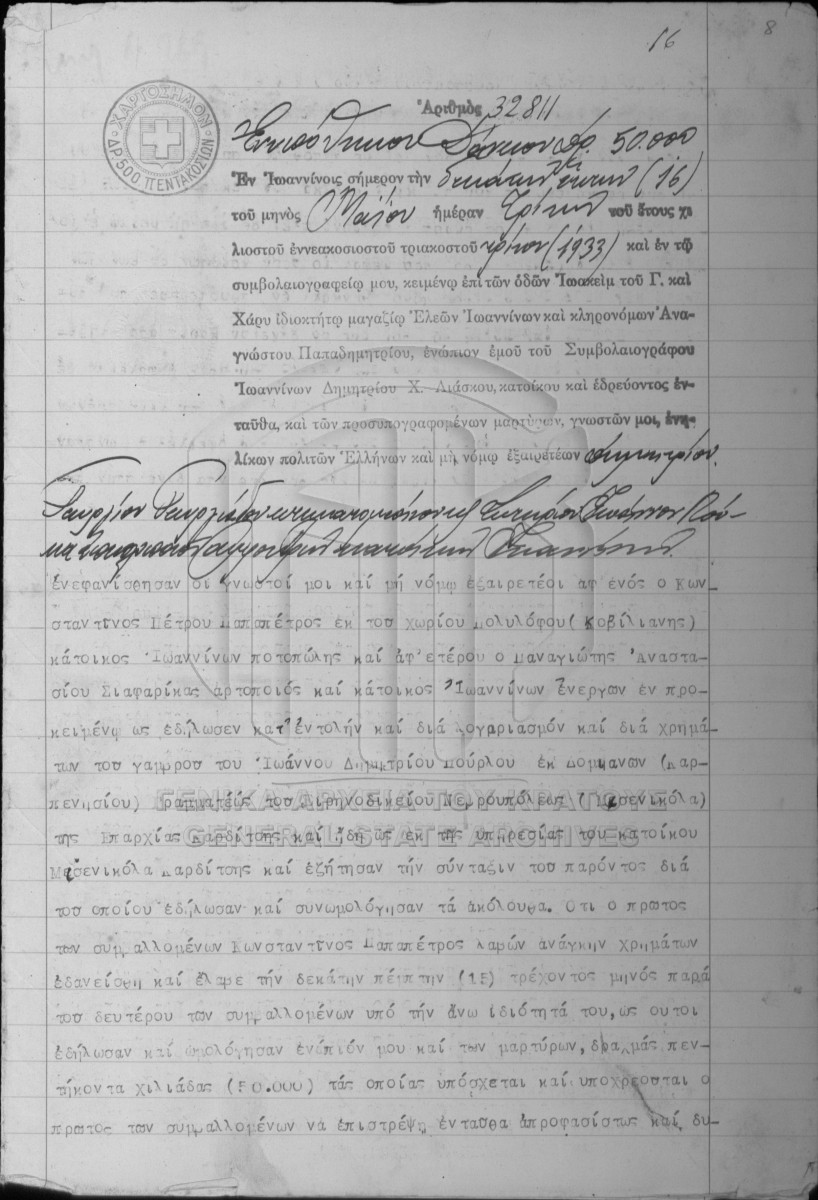 16
8
ΧΑΡΤΟΣΗΜΟΝ
ΔΡ. 500 ΠΕΝΤΑΚΟΣΙΩΝ
Ἀριθμὸς 32811
Ἐνυπόθηκον Δάνειον Δρ. 50.000
Ἐν Ἰωαννίνοις σήμερον τὴν δεκάτην ἕκτην (16)
τοῦ μηνὸς Μαΐου ἡμέραν Τρίτην τοῦ ἔτους χι
λιοστοῦ ἐννεακοσιοστοῦ τριακοστοῦ τρίτου (1933) καὶ ἐν τῷ
συμβολαιογραφείῳ μου, κειμένῳ ἐπὶ τῶν ὁδῶν Ἰωακεὶμ τοῦ Γ. καὶ
Χάρυ ἰδιοκτήτῳ μαγαζίῳ Ἐλεῶν Ἰωαννίνων καὶ κληρονόμων Ἀνα-
γνώστου Παπαδημητρίου, ἐνώπιον ἐμοῦ τοῦ Συμβολαιογράφου
Ἰωαννίνων Δημητρίου Χ. Λιάσκου, κατοίκου καὶ ἑδρεύοντος ἐν-
ταῦθα, καὶ τῶν προσυπογραφομένων μαρτύρων, γνωστῶν μοι, ἐνη-
λίκων πολιτῶν Ἑλλήνων καὶ μὴ νόμῳ ἐξαιρετέων Δημητρίου
Γεωργίου
ἐνεφανίσθησαν οἱ γνωστοί μοι καί μή νόμῳ ἐξαιρετέοι ἀφ ἑνός ο Κων-
σταντῖνος Πέτρου Παπαπέτρος ἐκ του χωρίου Πολυλόφου (Κοβίλιανης)
κάτοικος Ἰωαννίνων ποτοπώλης καί ἀφ'ετέρου ο Παναγιώτης Ἀναστα-
σίου Σιαφαρίκας ἀρτοποιός καί κάτοικος Ἰωαννίνων ἐνεργων ἐν προ-
κειμένῳ ως ἐδήλωσεν κατ'ἐντολήν καί διά λογαριασμόν καί διά χρημά
των του γαμβρου του Ἰωάννου Δημητρίου Πούρλου ἐκ Δομιανων (Καρ-
πενησίου) Γραμματέως του Εἰρηνοδικείου Νευρουπόλεως (Μεσενικόλα)
της Ἐπαρχίας Καρδίτσης καί ἤδη ως ἐκ της υπηρεσίας του κατοίκου
Μεσενικόλα Καρδίτσης καί ἐζήτησαν τήν σύνταξιν του παρόντος διά
του οποίου ἐδήλωσαν καί συνωμολόγησαν τά ἀκόλουθα. Οτι ο πρωτος
των συμβαλλομένων Κωνσταντῖνος Παπαπέτρος λαβών ἀνάγκην χρημάτων
ἐδανείσθη καί ἔλαβε τήν δεκάτην πέμπτην (15) τρέχοντος μηνός παρά
του δευτέρου των συμβαλλομένων υπό τήν ἄνω ἰδιότητά του, ως ουτοι
ἐδήλωσαν καί ωμολόγησαν ἐνώπιόν μου καί των μαρτύρων, δραχμάς πεν-
τήκοντα χιλιάδας (50.000) τάς οποίας υπόσχεται καί υποχρεουται ο
πρωτος των συμβαλλομένων νά ἐπιστρέψῃ ἐνταυθα ἀπροφασίστως καί δυ-
ΓΕΝΙΚΑ ΑΡΧΕΙΑ ΤΟΥ ΚΡΑΤΟΥΣ
GENERAL STATE ARCHIVES